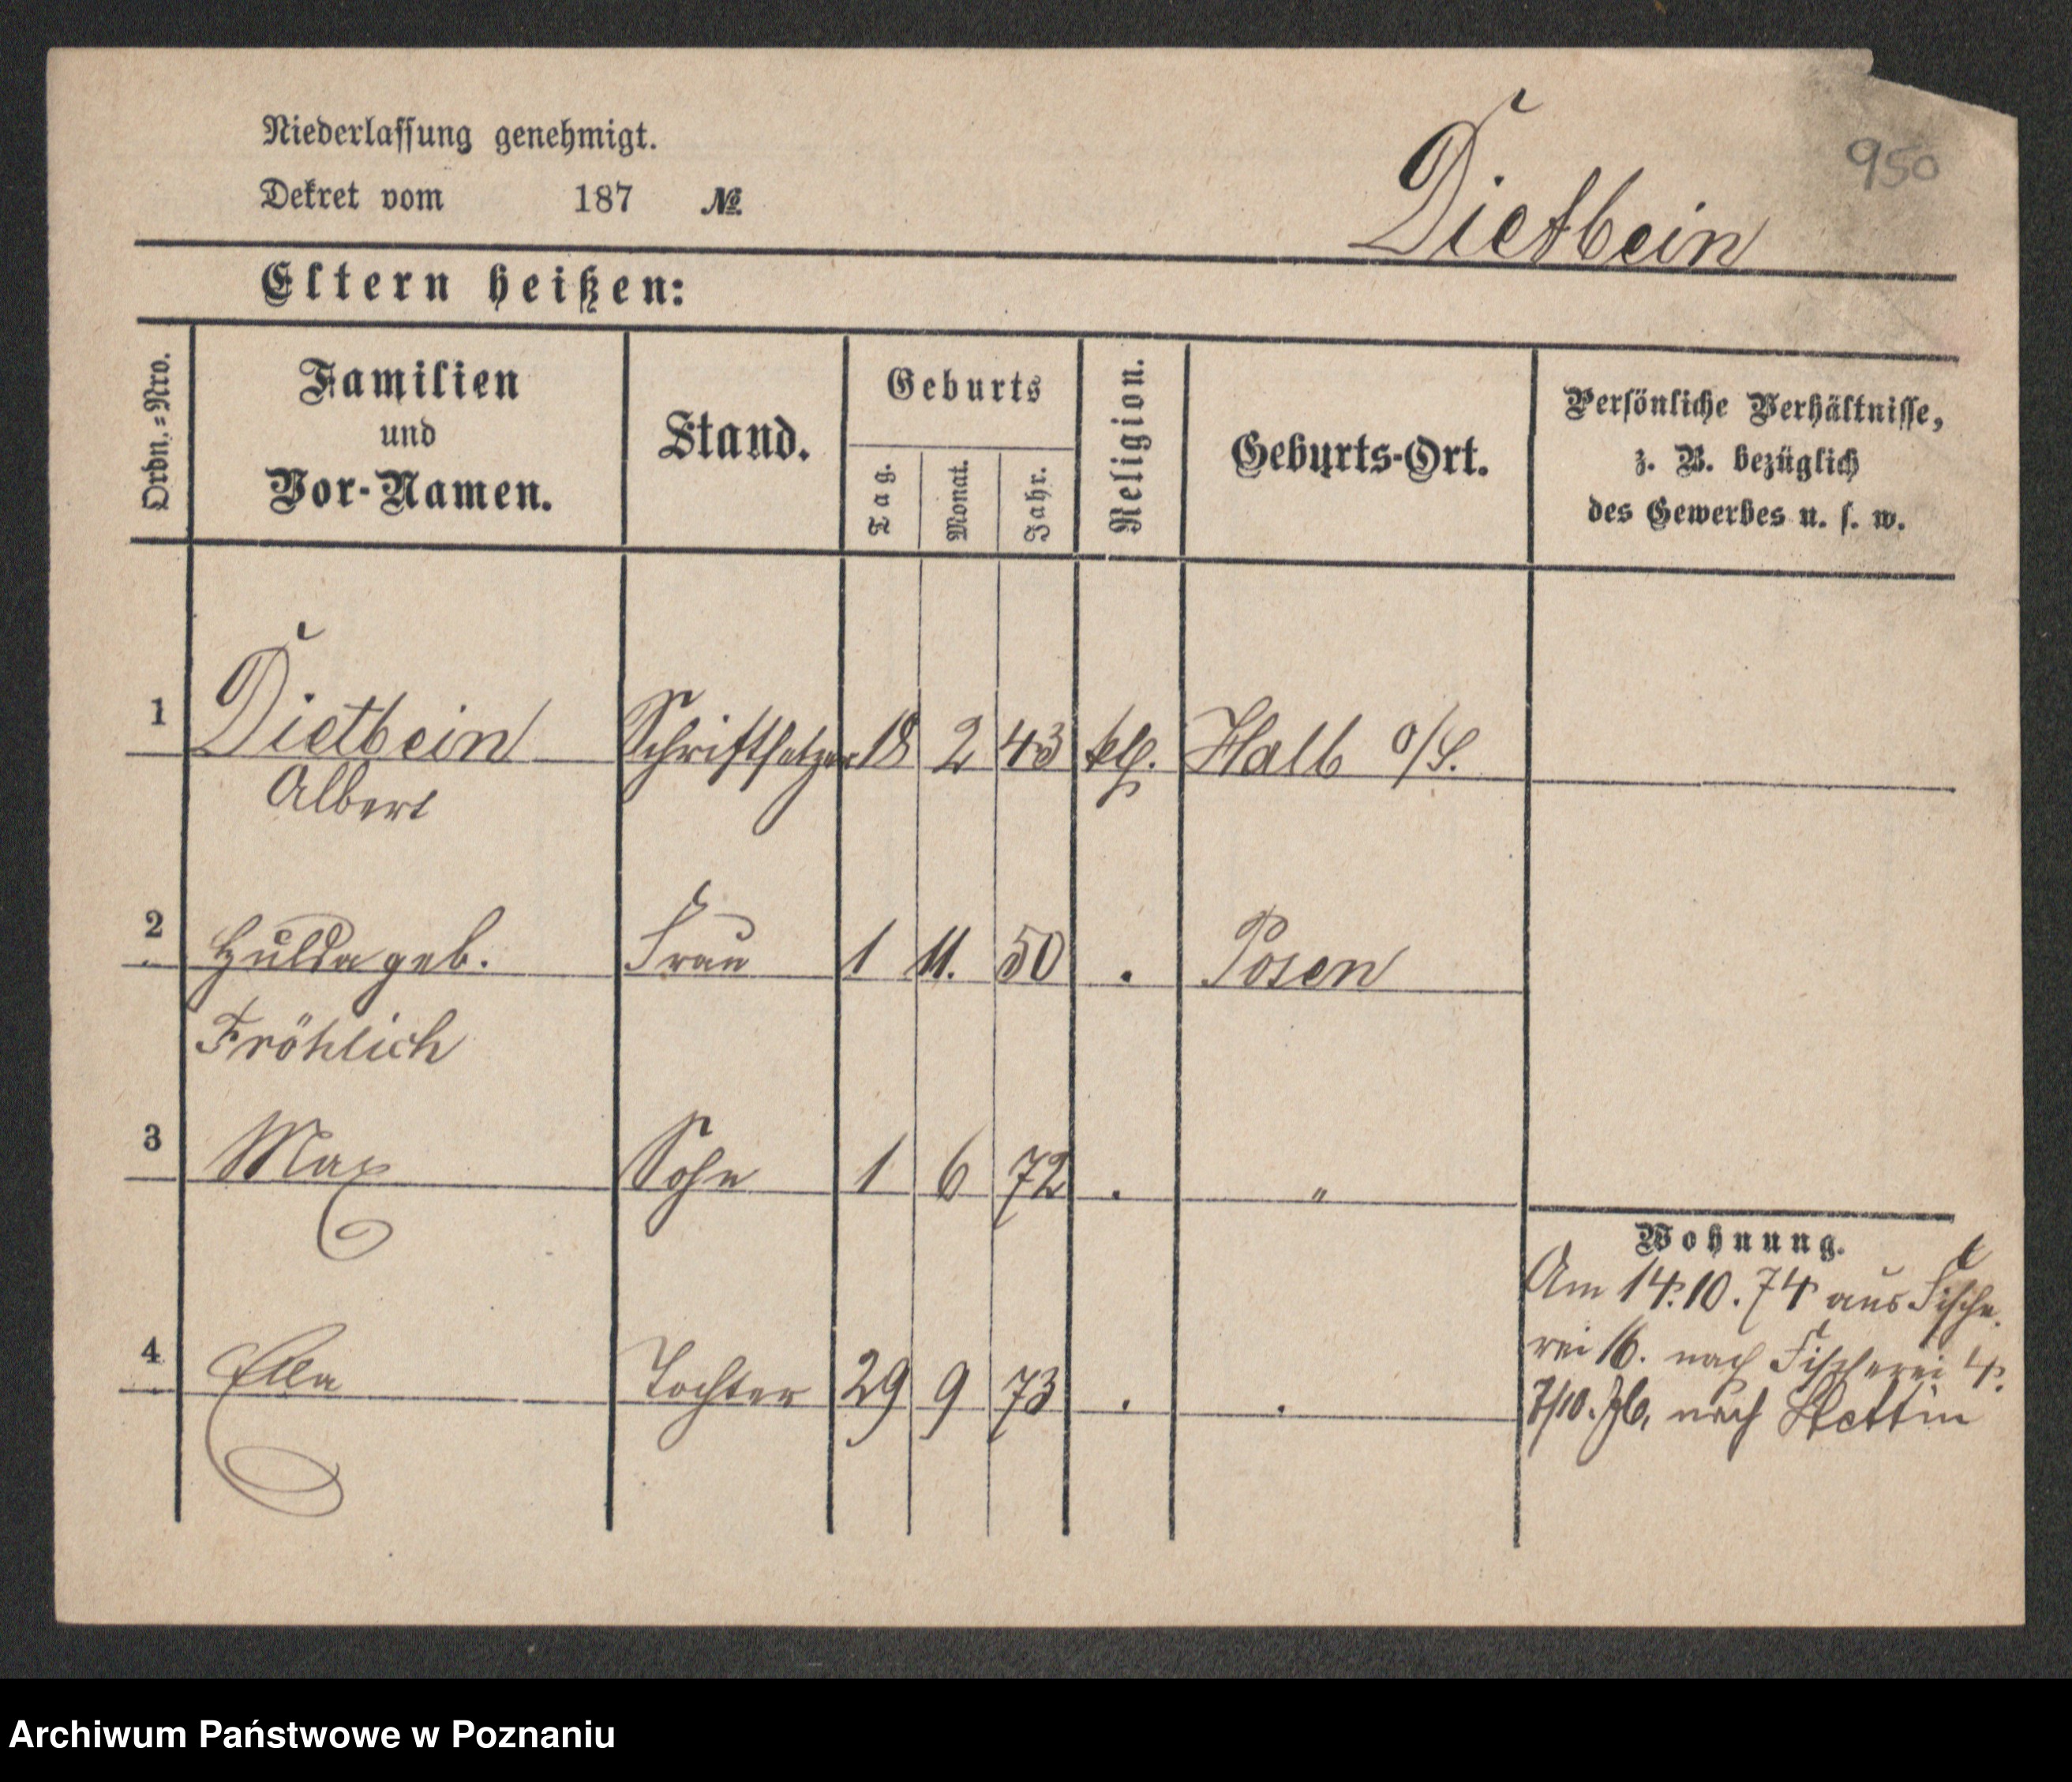 950
Niederlassung genehmigt.
Dekret vom 187 №
Dietbein
Eltern heißen:
Ordn.=Nro.
Familien
und
Vor-Namen.
Stand.
Geburts
Tag.
Monat.
Jahr.
Religion.
Geburts-Ort.
Persönliche Verhältnisse,
z. B. bezüglich
des Gewerbes u. s. w.
1 Dietbein Schriftsetzer 18 2 43 Halb o/S.
Albert
2 Hulda geb. Frau 1 11. 50 . Posen
Fröhlich
3 Max Sohn 1 6 72 . "
4 Ella Tochter 29 9 73 . .
Wohnung.
Am 14.10.74 aus Fische
rei 16. nach Fischerei 4.
7/10. nach Stettin
Archiwum Państwowe w Poznaniu